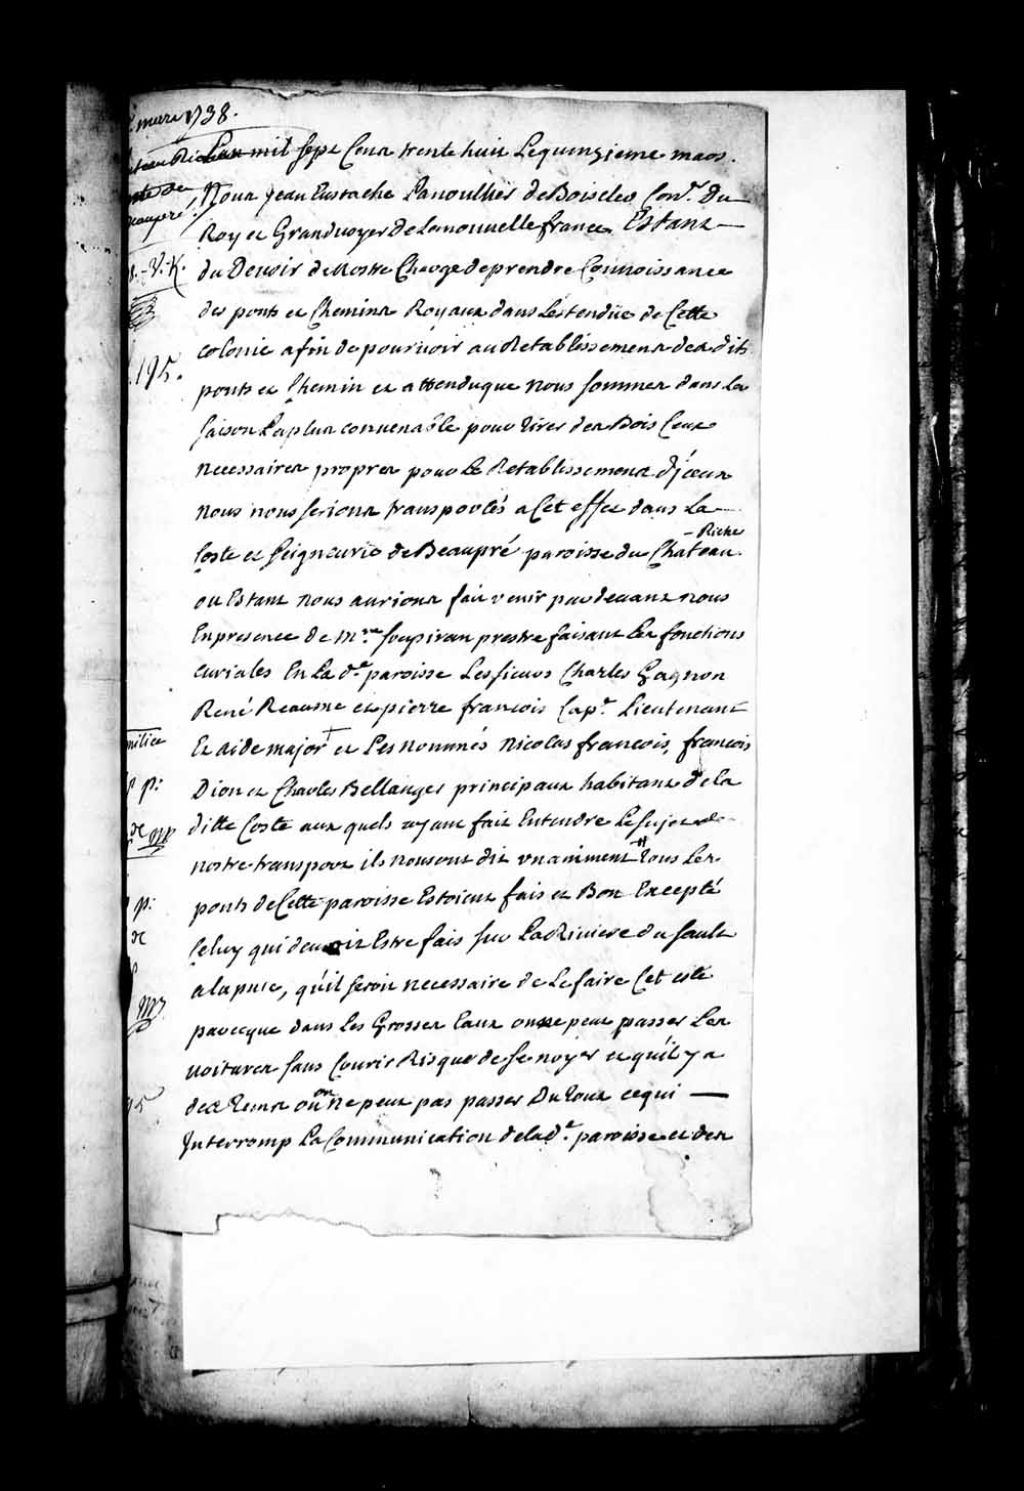 mars 1738.
L'an mil sept Cens trente huit Lequinzieme mars.
Nous Jean Eustache Lanoullier deBoiscler Con.er du
Roy et Grandvoyer De Lanouuelle france Estant
du Deuoir de Nostre Charge deprendre Connoissance
des ponts et Chemins Royaux dans Lestendüe de Cette
colonie afin de pouruoir au Retablissement des dits
195.
ponts et Chemin et attenduque nous sommes dans La
saison Laplus conuenable pour tirer des Bois Ceux
necessaires propres pour Le Retablissement d'jceux
nous nous serions transportés a Cet effet dans La
Riche
Coste et Seigneurie de Beaupré paroisse du Chateau
ou Estant nous aurions fait venir pardeuant nous
Enpresence de M.re Soupiran prestre faisant Les fonctions
curiales En La d.e paroisse Les sieurs Charles Gagnon
René Reaume et pierre francois Cap.e Lieutenant
milice
Et aide major et Les nommés Nicolas francois, francois
p:
Dion et Charles Bellanger principaux habitans de la
ditte Coste aux quels ayant fait Entendre Le sujet de
nostre transport ils nousont dit vnaniment tous Les
p:
ponts deCette paroisse Estoient fais et Bon Excepté
Celuy qui deuoit Estre fais sur La Riuiere du sault
alapuce, qu'il seroit necessaire de Le faire Cet esté
parceque dans Les Grosses Eaux on ne peut passer Les
voitures sans Courir Risque de se noyer et quil y a
des tems on ne peut pas passer Du tout cequi
Interromp La Communication de la d.e paroisse et des